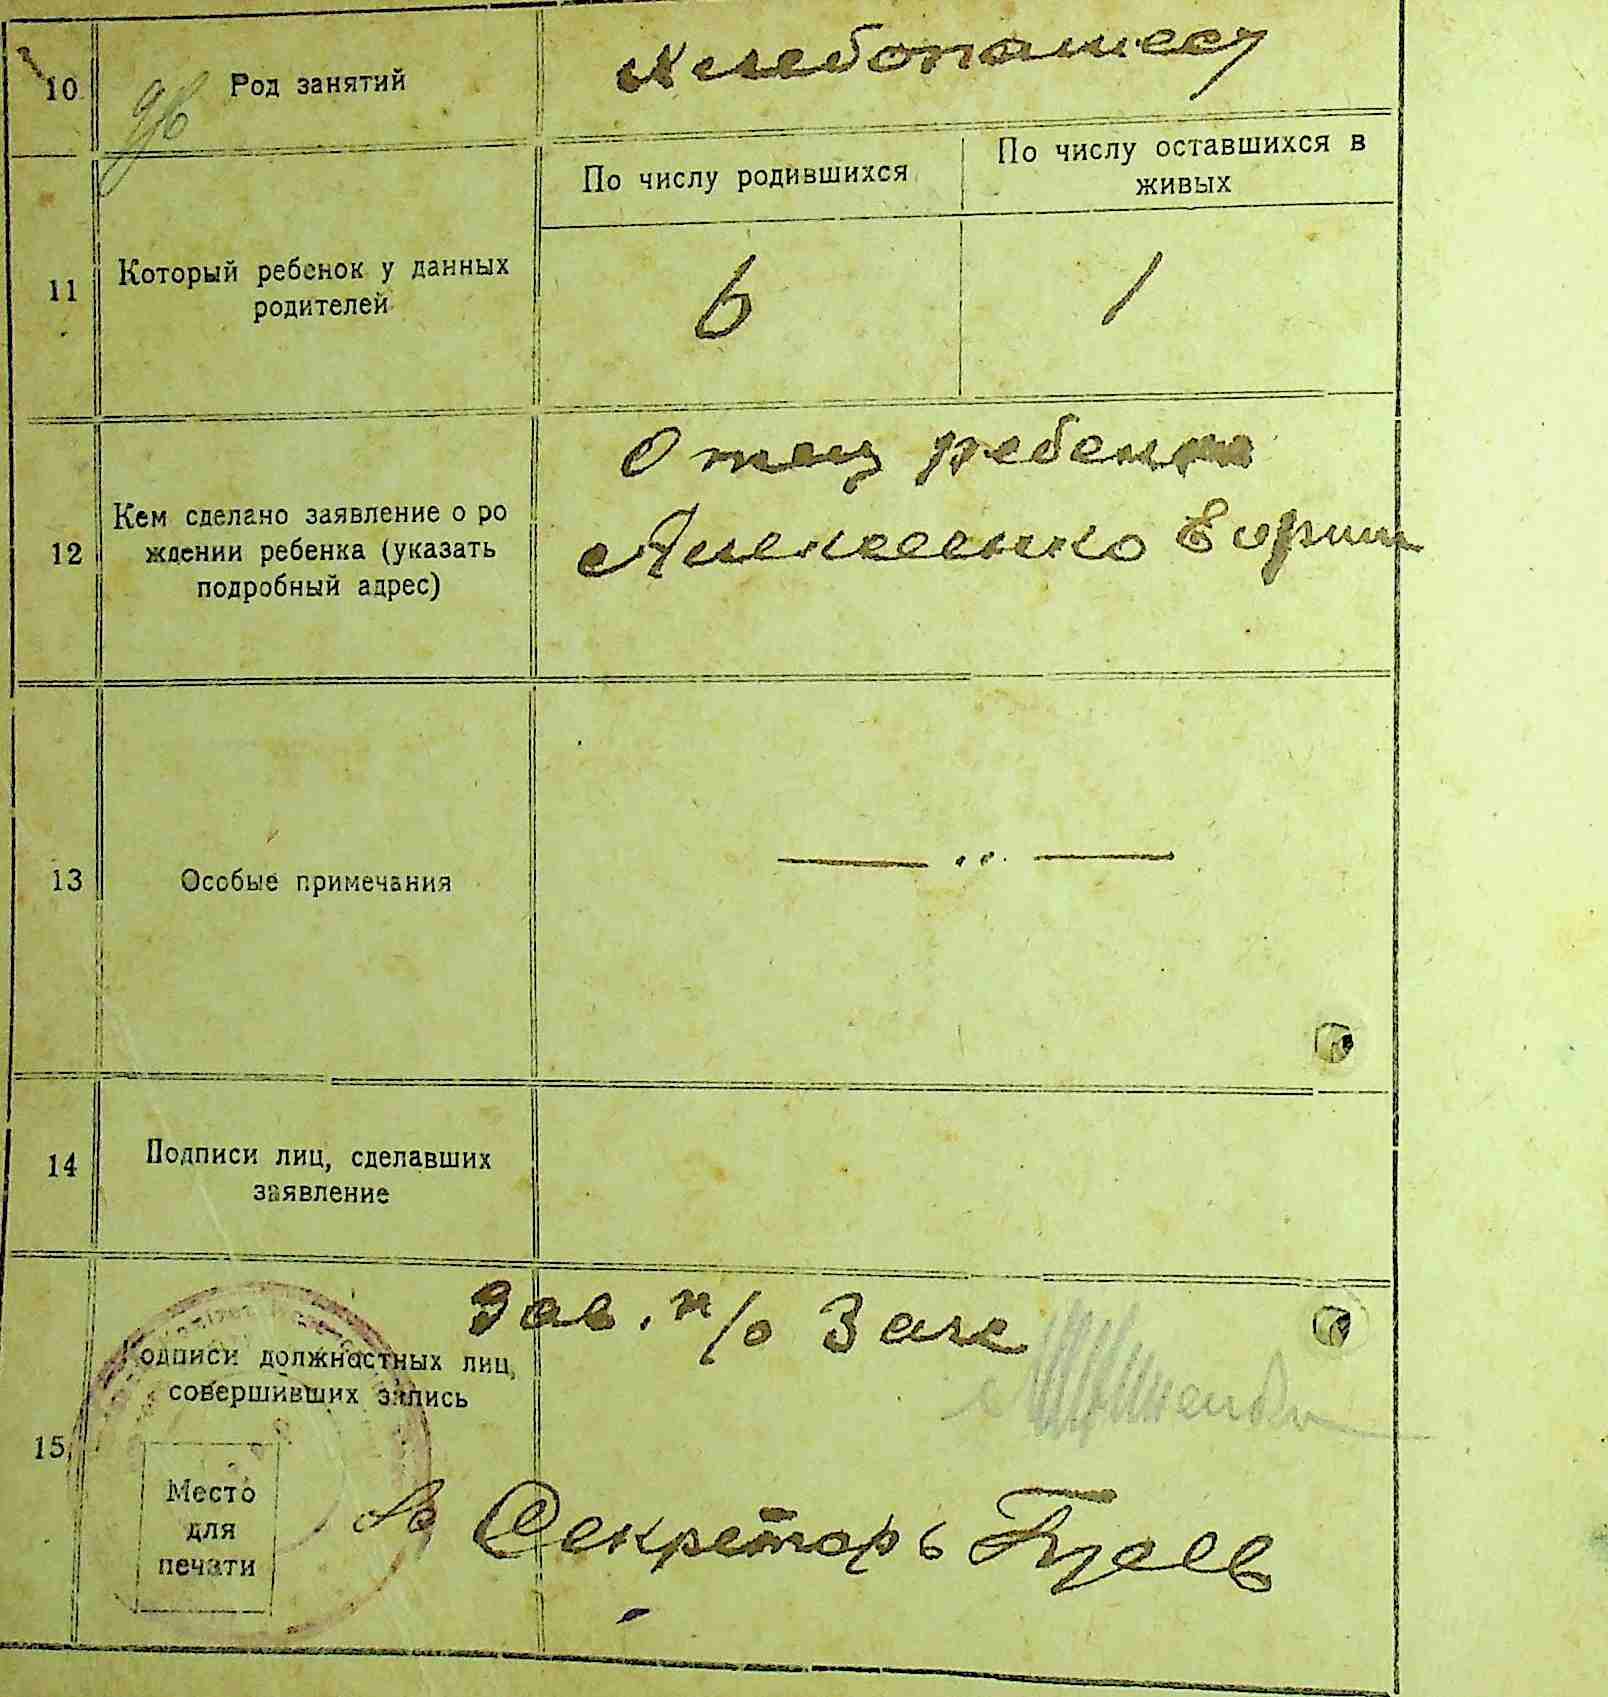 10
Род занятий
Хлебопашест
По числу родившихся
По числу оставшихся в
живых
11
Который ребенок у данных
родителей
6
1
12
Кем сделано заявление о ро
ждении ребенка (указать
подробный адрес)
Отец ребенка
Алексеенко
13
Особые примечания
14
Подписи лиц, сделавших
заявление
15
Подписи должностных лиц,
совершивших запись
Зав. п/о Загс
Место
для
печати
Секретарь